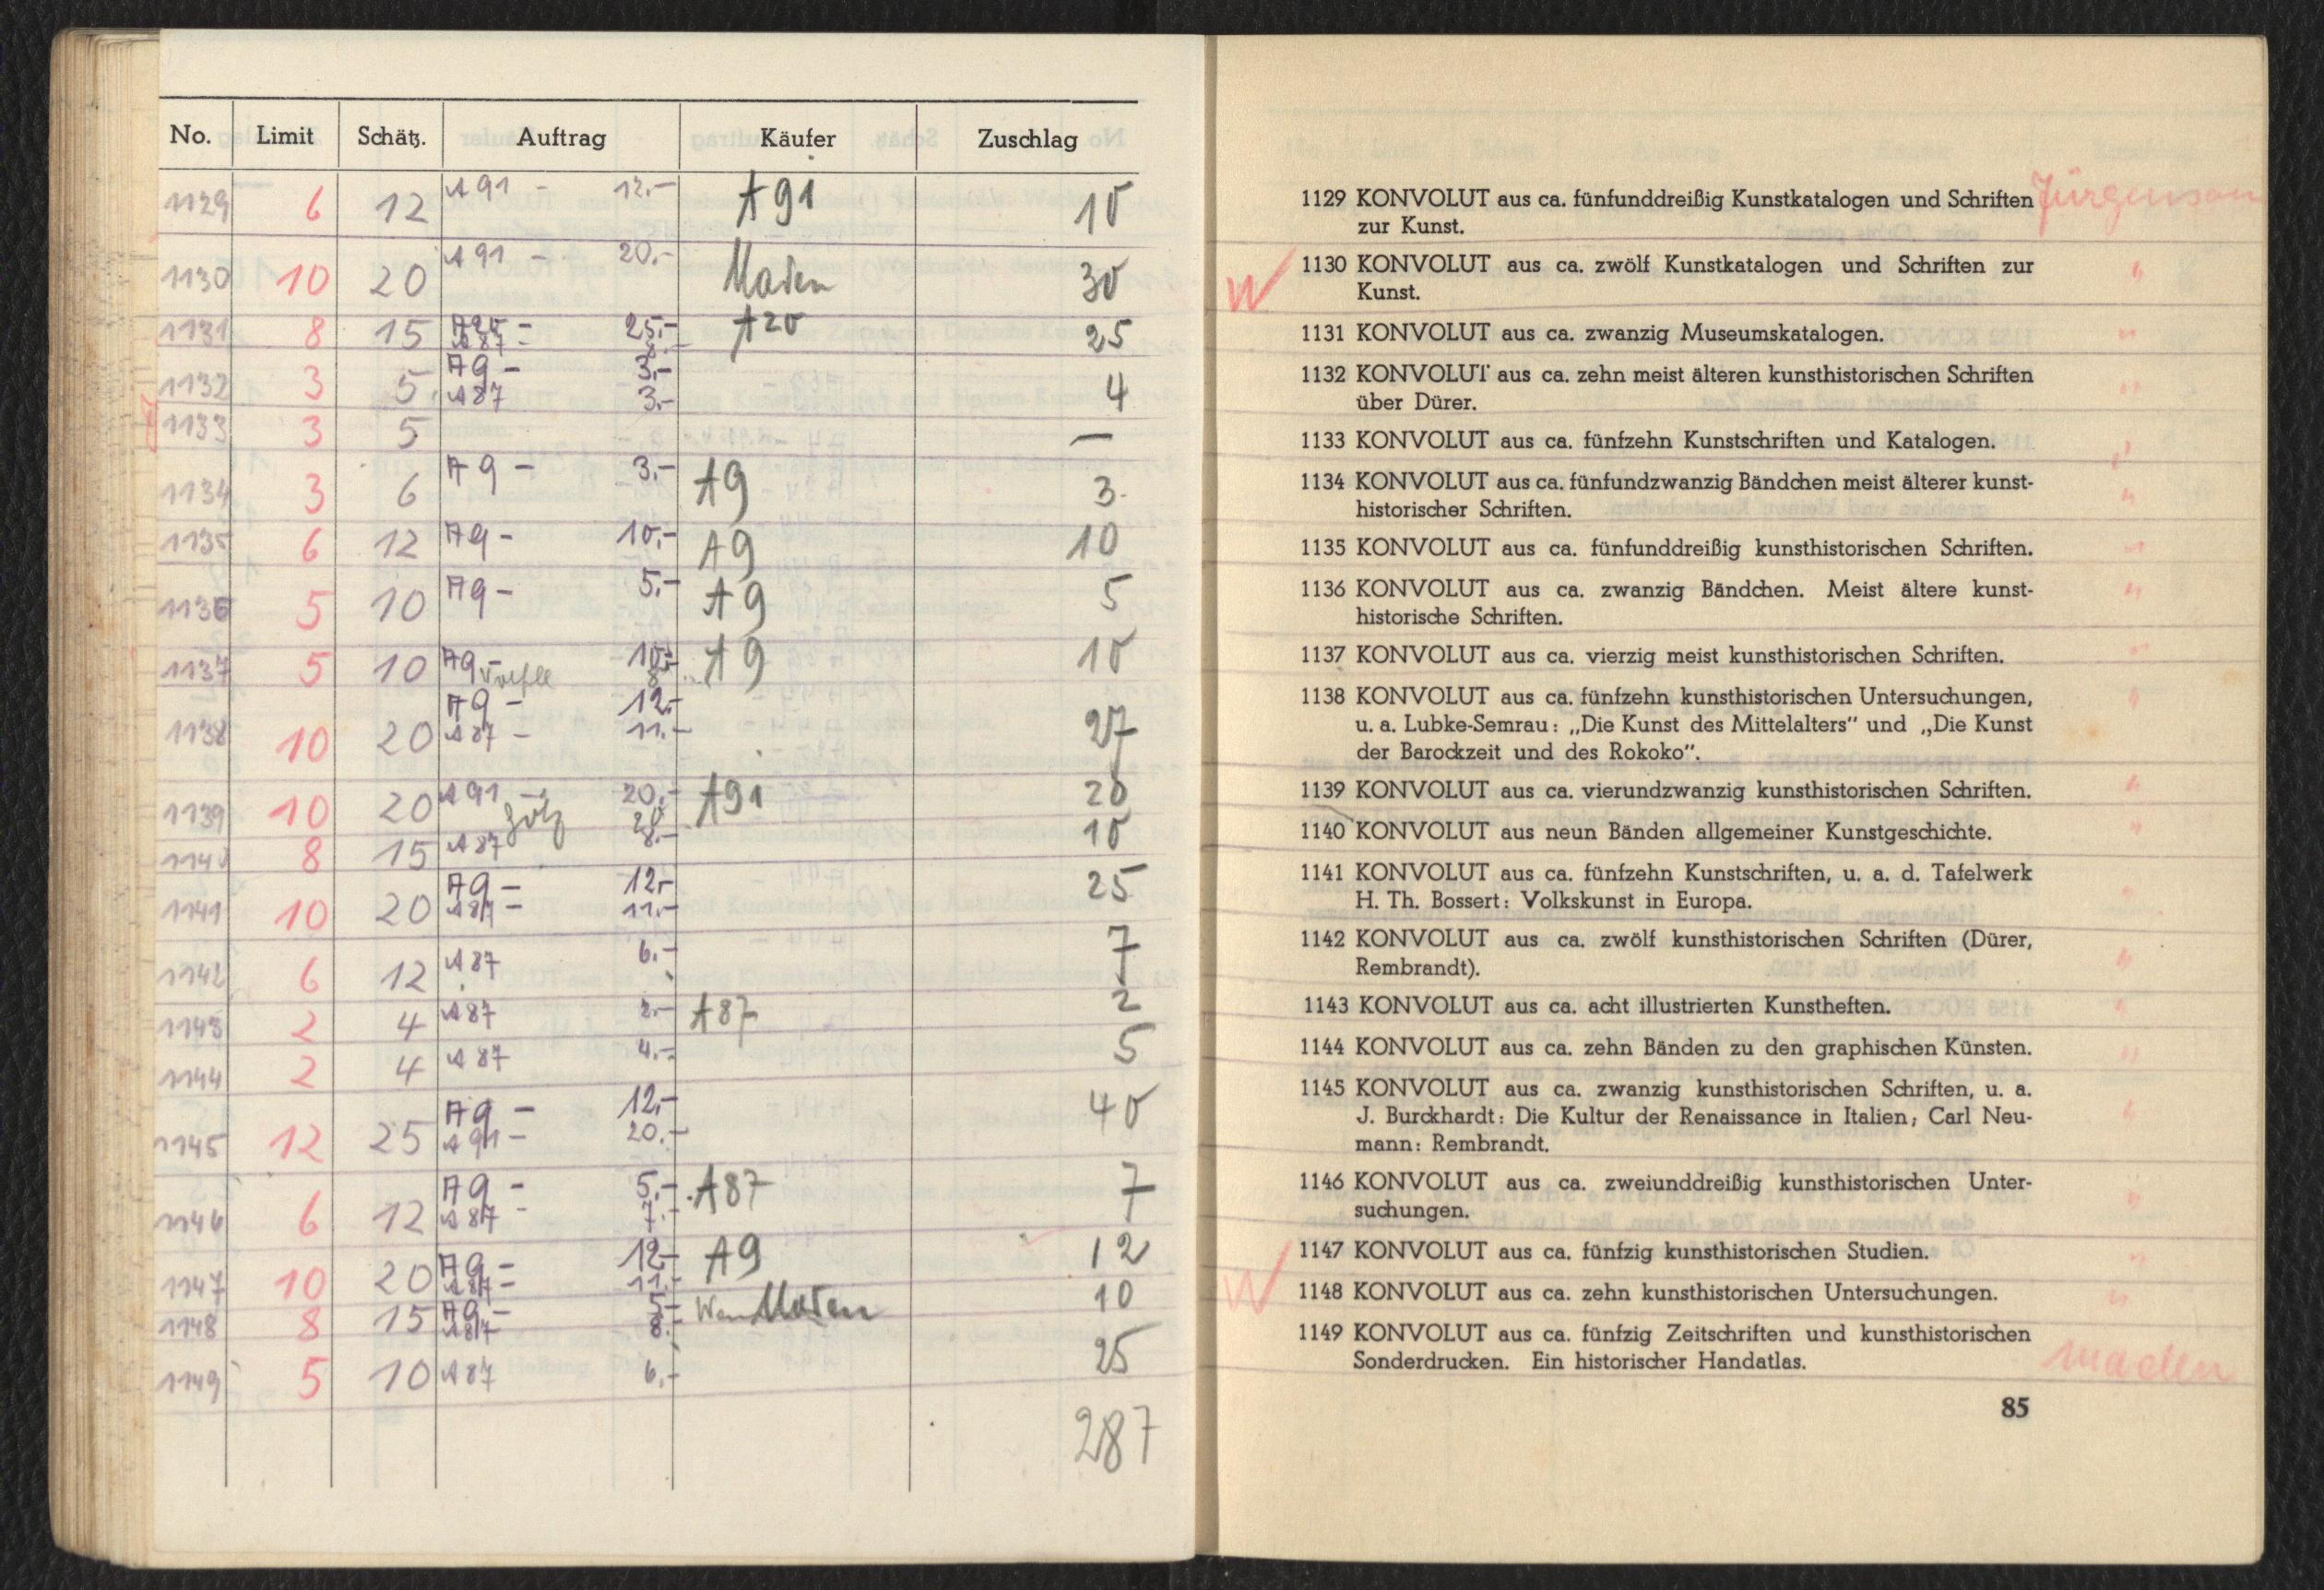 No. Limit Schätz. Auftrag Käufer Zuschlag
1129 6 12 A91 - 12.- A91 10
1130 10 20 A91 - 20.- Maden 30
1131 8 15 A20 - 25.- A20 25
A87 -
A9 - 3.-
1132 3 5 A87 3.- 4
1133 3 5 —
1134 3 6 A9 - 3.- A9 3.
1135 6 12 A9 - 10.- A9 10
1136 5 10 A9 - 5.- A9 5
1137 5 10 A9 - 10.- A9 10
8.-
A9 - 12.-
1138 10 20 A87 - 11.- 27
1139 10 20 A91 - 20.- A91 20
1140 8 15 A87 8.- 10
A9 - 12.-
1141 10 20 A87 - 11.- 25
1142 6 12 A87 6.- 7
1143 2 4 A87 2.- A87 2
1144 2 4 A87 4.- 5
A9 - 12.-
1145 12 25 A91 - 20.- 40
A9 - 5.- A87 7
1146 6 12 A87 - 7.-
A9 - 12.- A9 12
1147 10 20 A87 - 11.-
1148 8 15 A9 - 5.- Maden 10
A87 8.-
1149 5 10 A87 6.- 25
287
1129 KONVOLUT aus ca. fünfunddreißig Kunstkatalogen und Schriften Jürgenson
zur Kunst.
W 1130 KONVOLUT aus ca. zwölf Kunstkatalogen und Schriften zur "
Kunst.
1131 KONVOLUT aus ca. zwanzig Museumskatalogen. "
1132 KONVOLUT aus ca. zehn meist älteren kunsthistorischen Schriften "
über Dürer.
1133 KONVOLUT aus ca. fünfzehn Kunstschriften und Katalogen. "
1134 KONVOLUT aus ca. fünfundzwanzig Bändchen meist älterer kunst- "
historischer Schriften.
1135 KONVOLUT aus ca. fünfunddreißig kunsthistorischen Schriften. "
1136 KONVOLUT aus ca. zwanzig Bändchen. Meist ältere kunst- "
historische Schriften.
1137 KONVOLUT aus ca. vierzig meist kunsthistorischen Schriften. "
1138 KONVOLUT aus ca. fünfzehn kunsthistorischen Untersuchungen, "
u. a. Lubke-Semrau: „Die Kunst des Mittelalters" und „Die Kunst
der Barockzeit und des Rokoko".
1139 KONVOLUT aus ca. vierundzwanzig kunsthistorischen Schriften. "
1140 KONVOLUT aus neun Bänden allgemeiner Kunstgeschichte. "
1141 KONVOLUT aus ca. fünfzehn Kunstschriften, u. a. d. Tafelwerk "
H. Th. Bossert: Volkskunst in Europa.
1142 KONVOLUT aus ca. zwölf kunsthistorischen Schriften (Dürer, "
Rembrandt).
1143 KONVOLUT aus ca. acht illustrierten Kunstheften. "
1144 KONVOLUT aus ca. zehn Bänden zu den graphischen Künsten. "
1145 KONVOLUT aus ca. zwanzig kunsthistorischen Schriften, u. a. "
J. Burckhardt: Die Kultur der Renaissance in Italien; Carl Neu-
mann: Rembrandt.
1146 KONVOLUT aus ca. zweiunddreißig kunsthistorischen Unter- "
suchungen.
1147 KONVOLUT aus ca. fünfzig kunsthistorischen Studien. "
W 1148 KONVOLUT aus ca. zehn kunsthistorischen Untersuchungen. "
1149 KONVOLUT aus ca. fünfzig Zeitschriften und kunsthistorischen
Sonderdrucken. Ein historischer Handatlas. maden
85